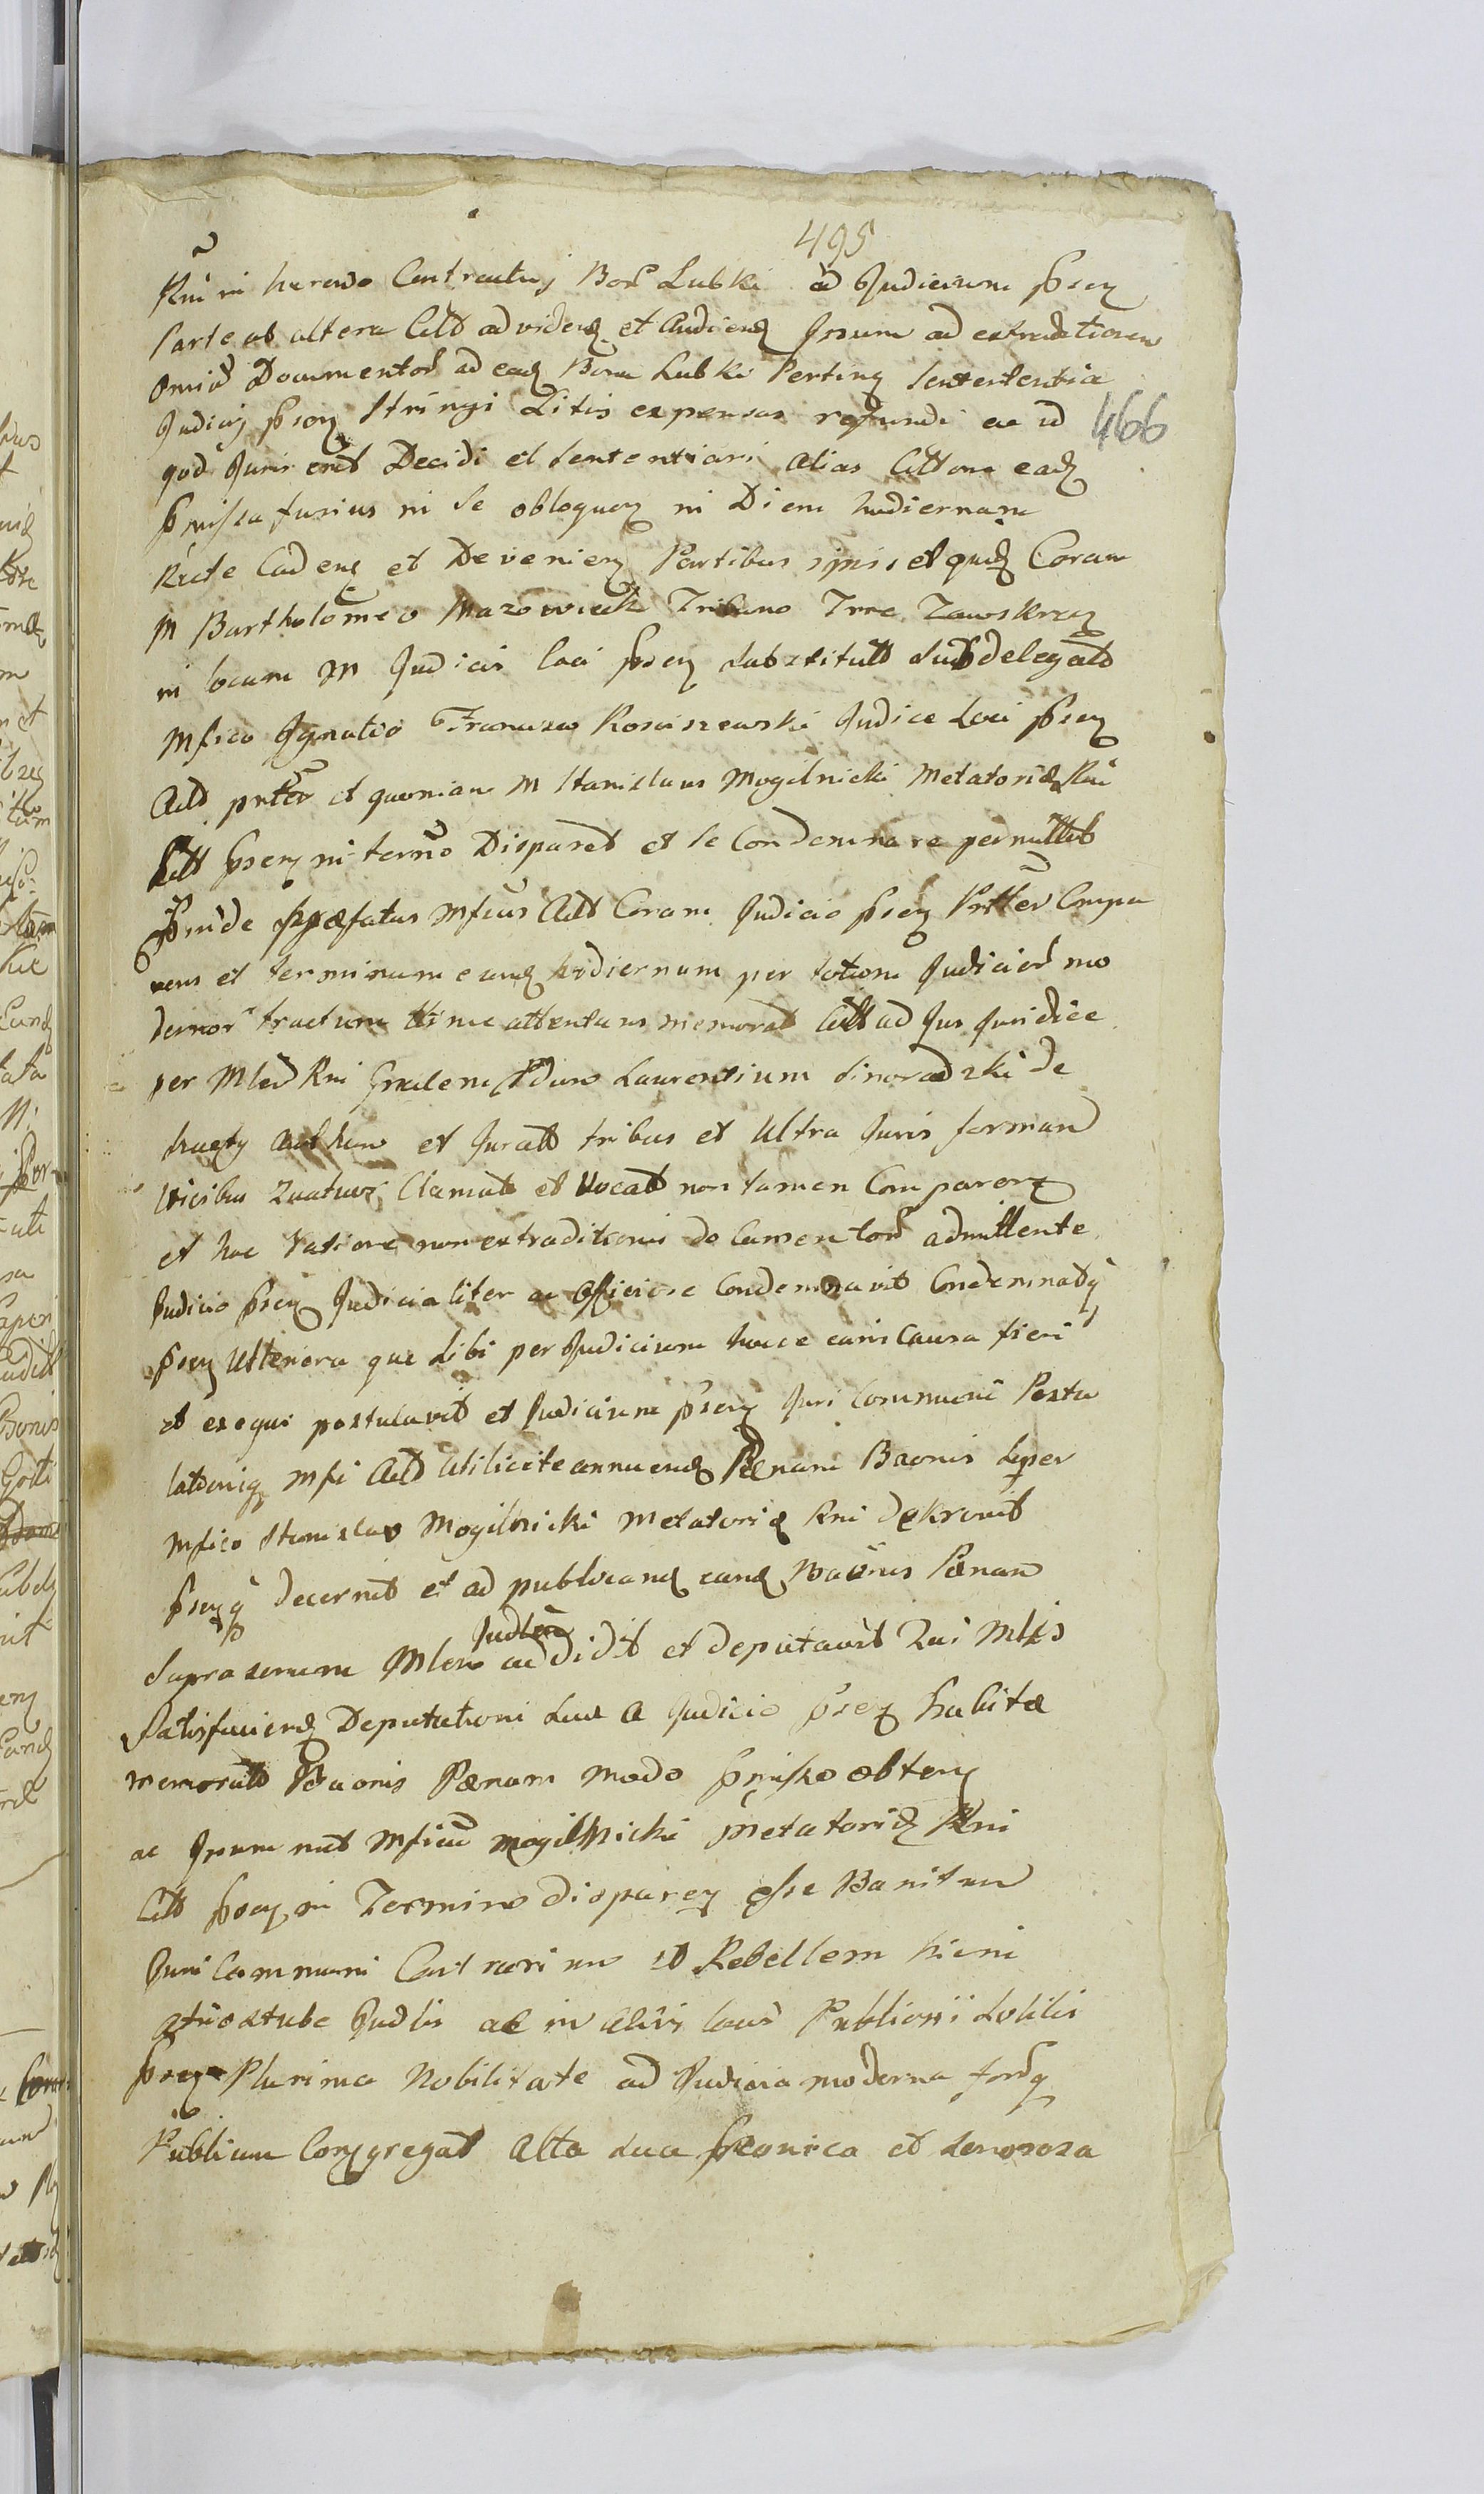 495
Rni in haredo Contractus Bor Lubki ad Judicium prsen
Parte ab altera Citt ad videnq et Audienq Ipsum ad extraditionem
Omniu Documentor ad eadq Bona Lubki Pertinen Sentertentia
Judicij prsen Stringi Litis expensas refundi ac id
466
qod Juris erit Decidi et Sententiari alias Cittone eadq
prmissa fusius in se obloquen in Diem hodiernam
Recte Cadenq et Devenien Partibus ipsis et quidq Coram
M Bartholomeo Mazowieck Tribuno Trre Zawskren
in locum M Judicis loci prsen Substitutt Subdelegato
Mfico Ignatio Franciszco Kosciszewski Judice Loci prsen
Actt pntter et quoniam M Stanislaus Mogilnicki Metatoridq Rni
Citt prsen in termno Disparet et se Condemnare permittit
Proinde præfatus Mficus Actt Coram Judicio prsen Pntter Compa
rens et terminum eundq hodiernum per totum Judicior mo
dernor tractum ttime attentans memorat Citt ad Jus Juridice
per Mled Rni Gnalem Pdum Laurentium Sinoradzki de
et Juratt tribus et Ultra Juris forman
Vicibus Zuatuor Clamatt et Vocatt non tamen Comparen
et hac ratione non extraditionis documentor admittente
Judicio prsen Judicialiter ac Officiose Condemnavit Condemnatq
prsen Ulteriora que Sibi per Judicium hocce ea in Causa fieri
et exequi postulavit et Judicium prsen Juri Communi Postu
lationiq Mfi Actt Utilicite annuendq Pænam Baonis Super
Mfico Stanislao Mogilnicki Metatoridq Rni dekrevit
prsenq decernit et ad publicandq eandq Baonis Pænam
Judtter
Suprascrium Mlem addidit et deputavit Zui Mlis
Satisfaciendq Deputationi Suæ A Judicio prsen habitæ
memoratt Baonis Pænam modo prmisso obten
ac Ipsum nut Mficu Mogilnicki Metatoridq Rni
Citt prsen in Termino disparen esse Banitum
Juri Communi Contrarium et Rebellem hicni
Judlis ac in aliis locis Publicis Solitis
prsen Plurima Nobilitate ad Judicia moderna forq
Publicum Congregatt Alta Sua præonica et Sonorosa